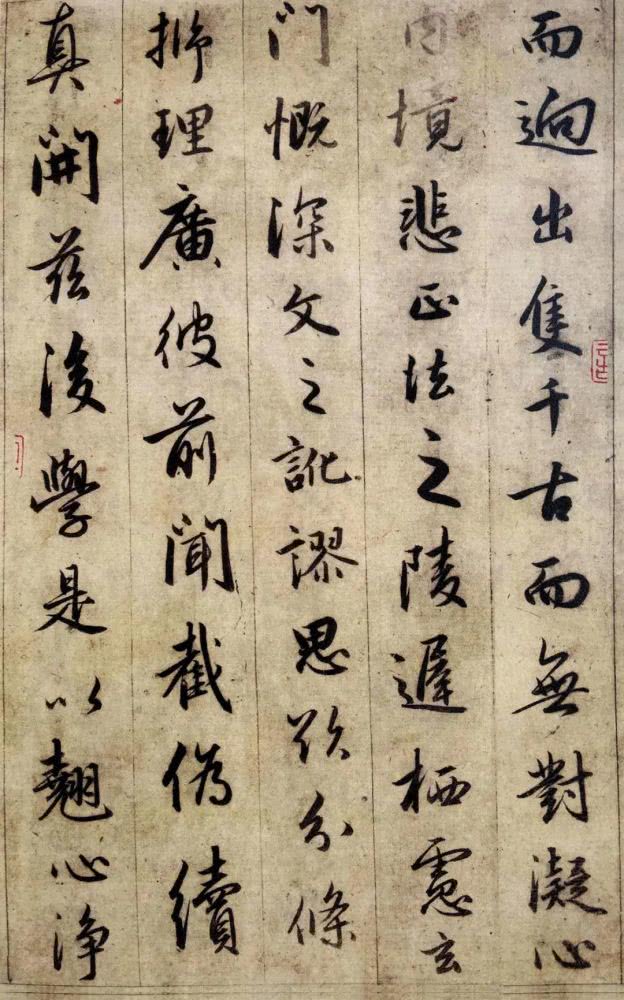 而逈出隻千古而無對凝心
内境悲正法之陵遲栖慮玄
門慨深文之訛謬思欲分條
㭊理廣彼前聞截偽續
真開茲後學是以翹心浄